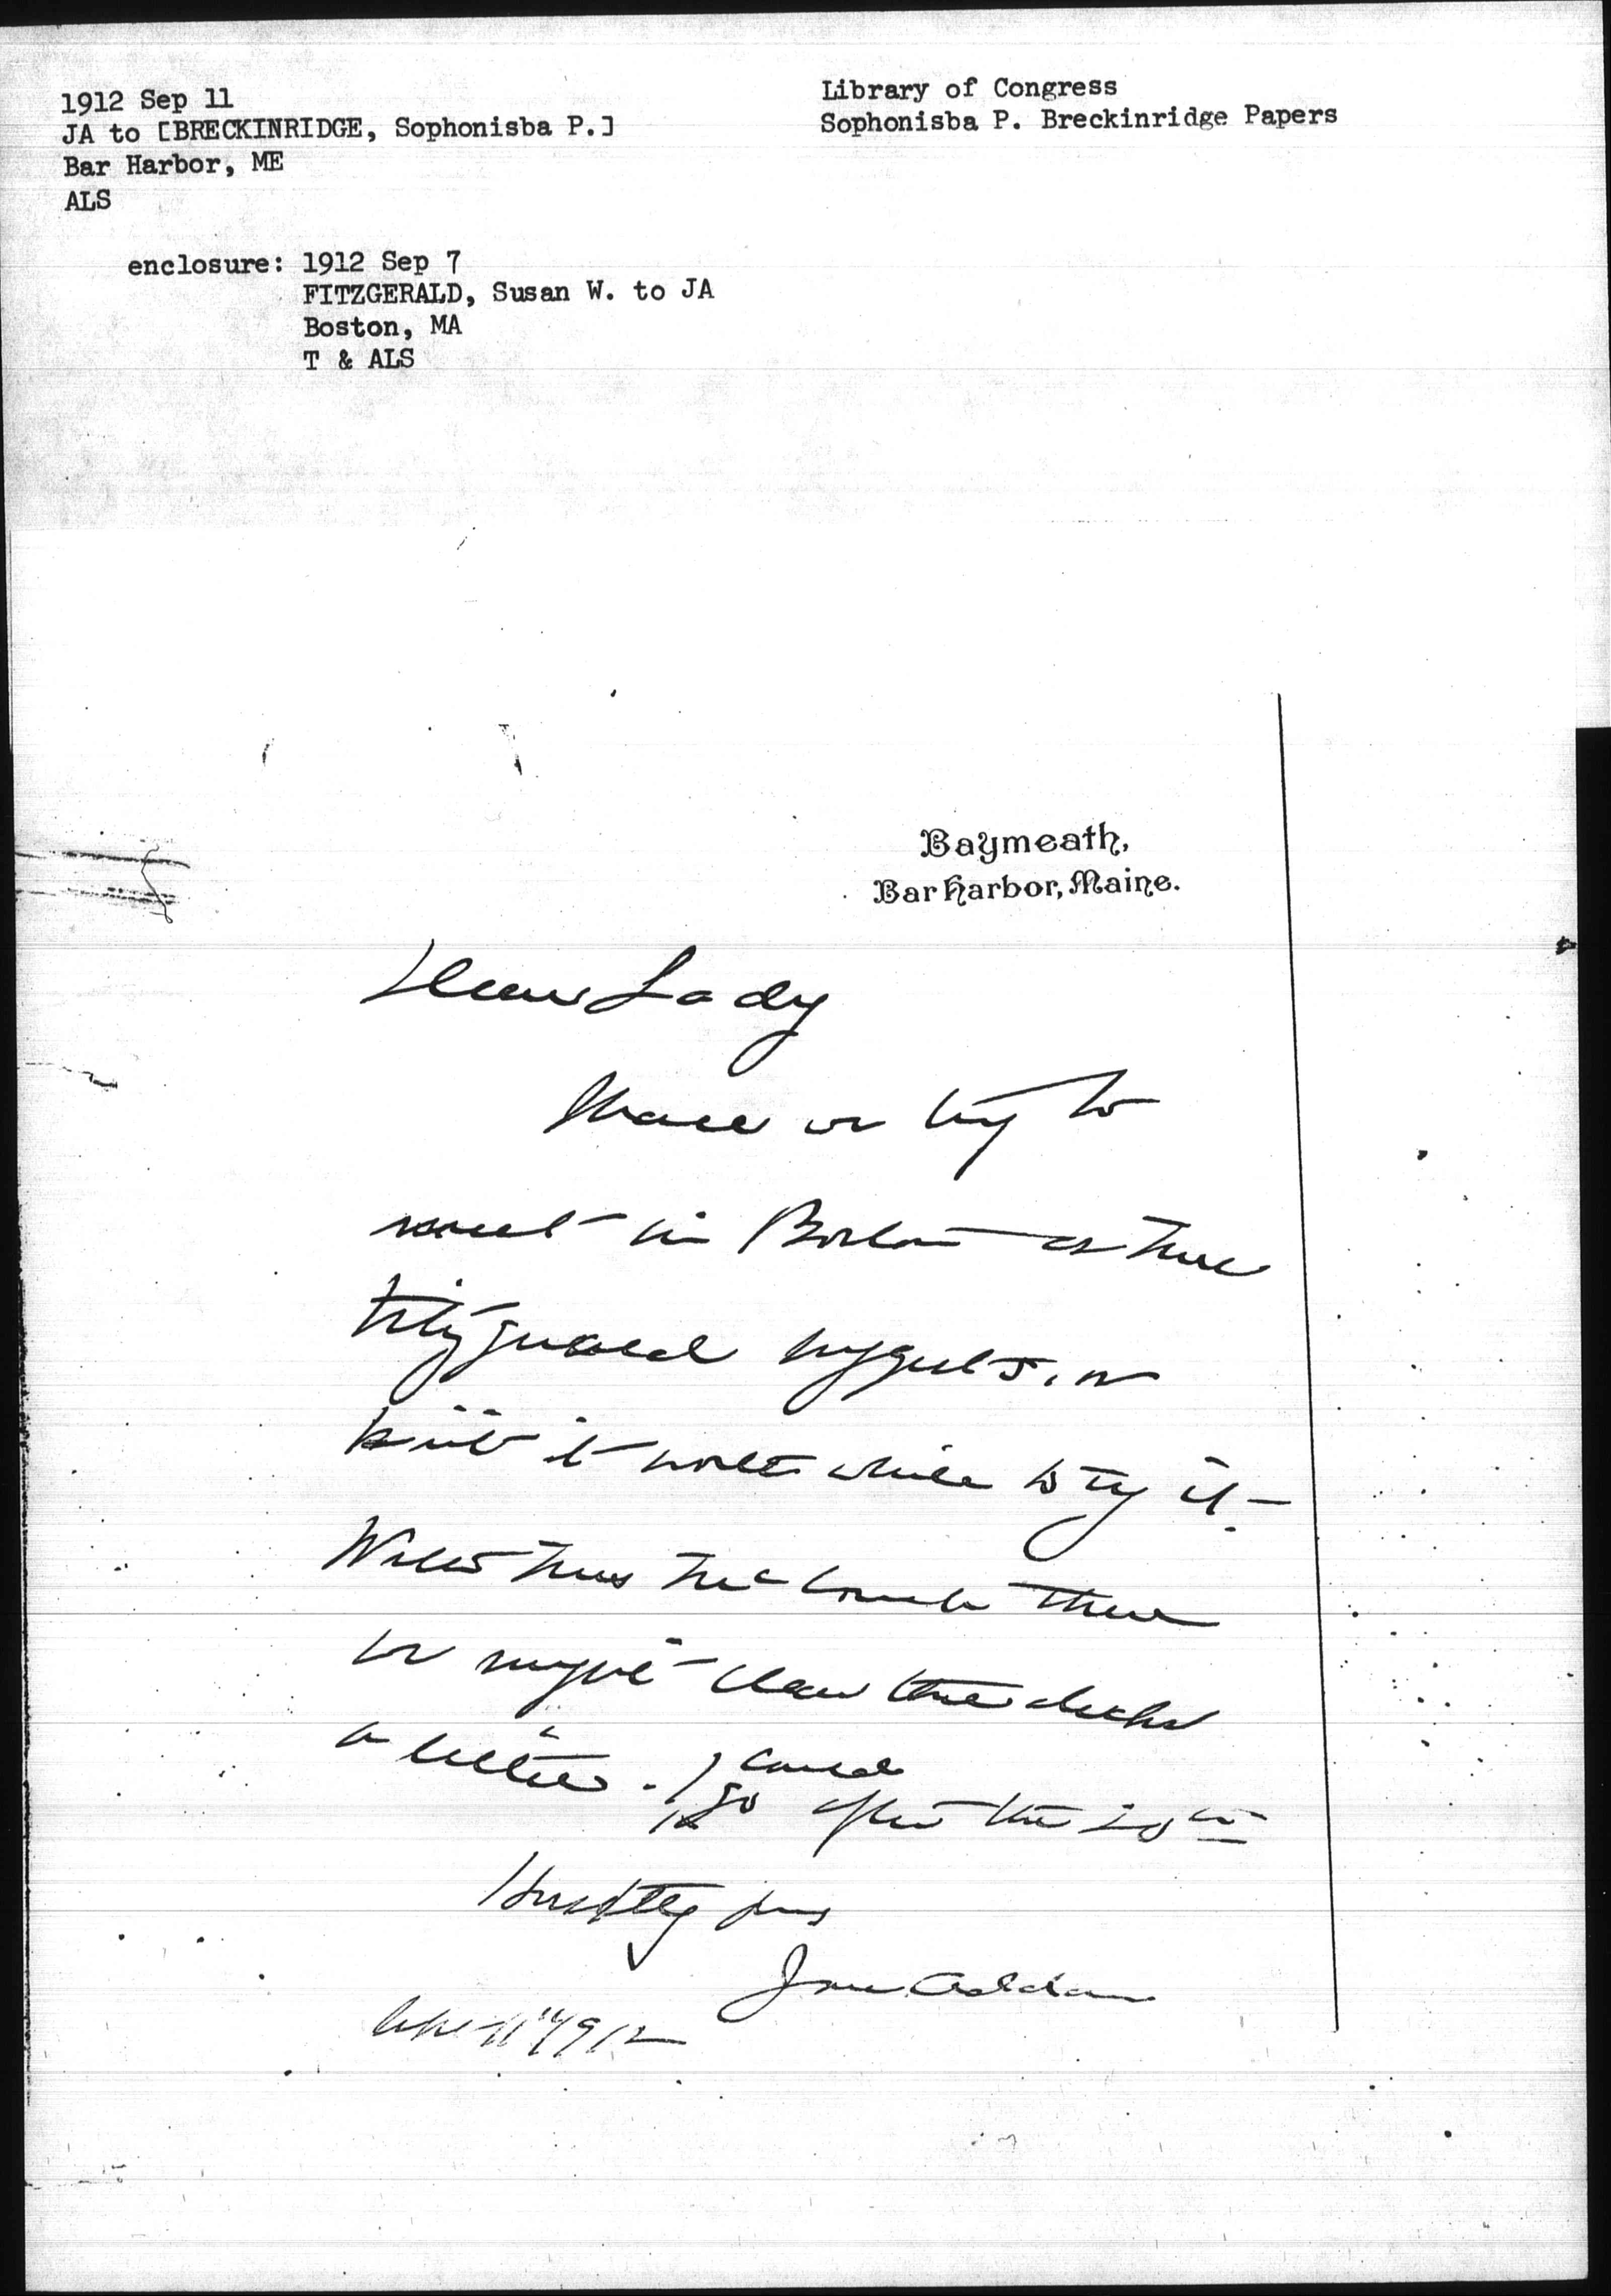 1912 Sep 11
JA to [BRECKINRIDGE, Sophonisba P.]
Bar Harbor, ME
ALS
Library of Congress
Sophonisba P. Breckinridge Papers
enclosure: 1912 Sep 7
FITZGERALD, Susan W. to JA
Boston, MA
T & ALS
Baymeath,
Bar Harbor, Maine.
Dear Lady
Shall we try to
meet in Boston as Mrs
Fitzgerald suggests, or
is it worth while to try it –
With Mrs McCormick there
we might clear the decks
a little. I could
go after the 20th
Hastily yours
Jane Addams
Sept 11" 1912